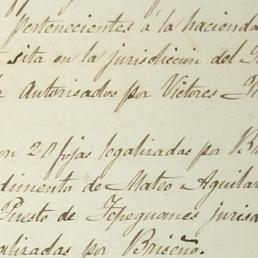 pertenecientes á la hacienda
sita en la jurisdiccion del
Autorisados por Victores
on 20 fojas legalizadas por
dimento de Mateo Aguilar
Puesto de Tepeguanes juris
alizadas por Briseño.